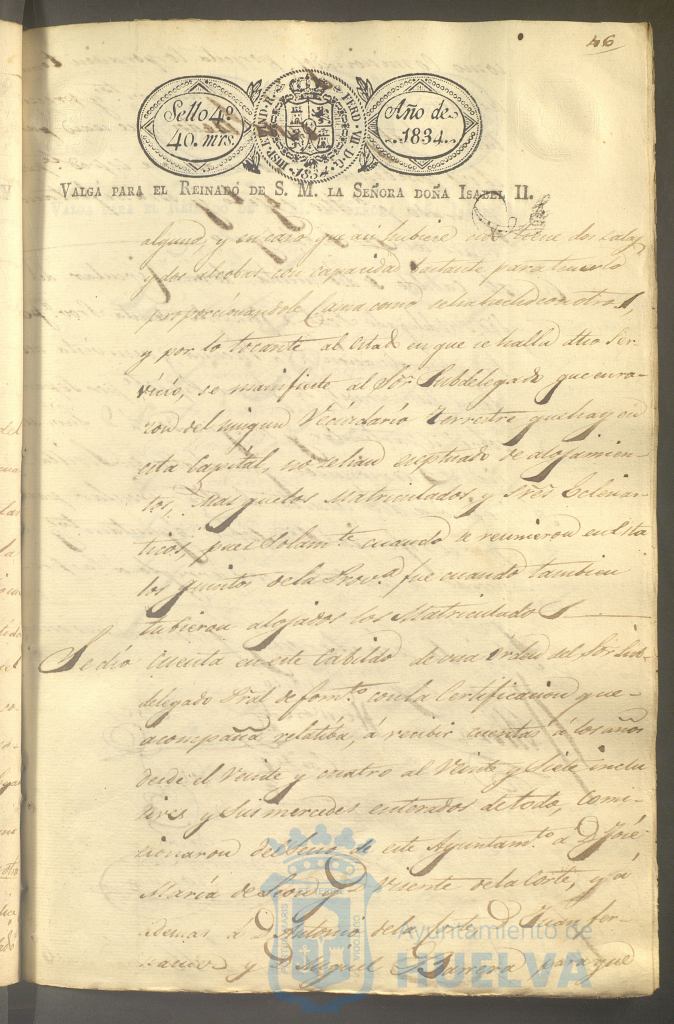 46
Sello 4º
40. mrs.
HISP. ET IND. R. FERD. VII. D. G. 1834
Año de
1834.
VALGA PARA EL REINADO DE S. M. LA SEÑORA DOÑA ISABEL II.
alguno, y en caso que asi hubiere dos Salas
y dos alcobas con capacidad bastante para tenerlo
proporcionandole Cama como se ha hecho con otros,
y por lo tocante al estado en que se halla dho Ser-
vicio, se manifieste al Sor. Subdelegado que en ra-
zon del ningun Vecindario terrestre que hay en
esta Capital, no se han eceptuado de alojamien-
tos, mas que los Matriculados y Sres Eclesias-
ticos, pues Solamte cuando se reunieron en Esta
los quintos de la Prova fue cuando tambien
tubieron alojados los Matriculados
Se dio cuenta en este Cabildo de una orden del Sor Sub-
delegado Pral de fomto con la Certificacion que
acompaña relatiba, á recibir cuentas á los años
desde el Veinte y cuatro al Veinte y Siete inclu
sives y sus mercedes enterados de todo, Comi-
zionaron del Seno de este Ayuntamto a D. José
María de Leon y D. Vicente de la Corte, y á
demas a D. Antonio de la Corte D. Juan fer-
y D. Miguel Barrera para que
Ayuntamiento de
HUELVA